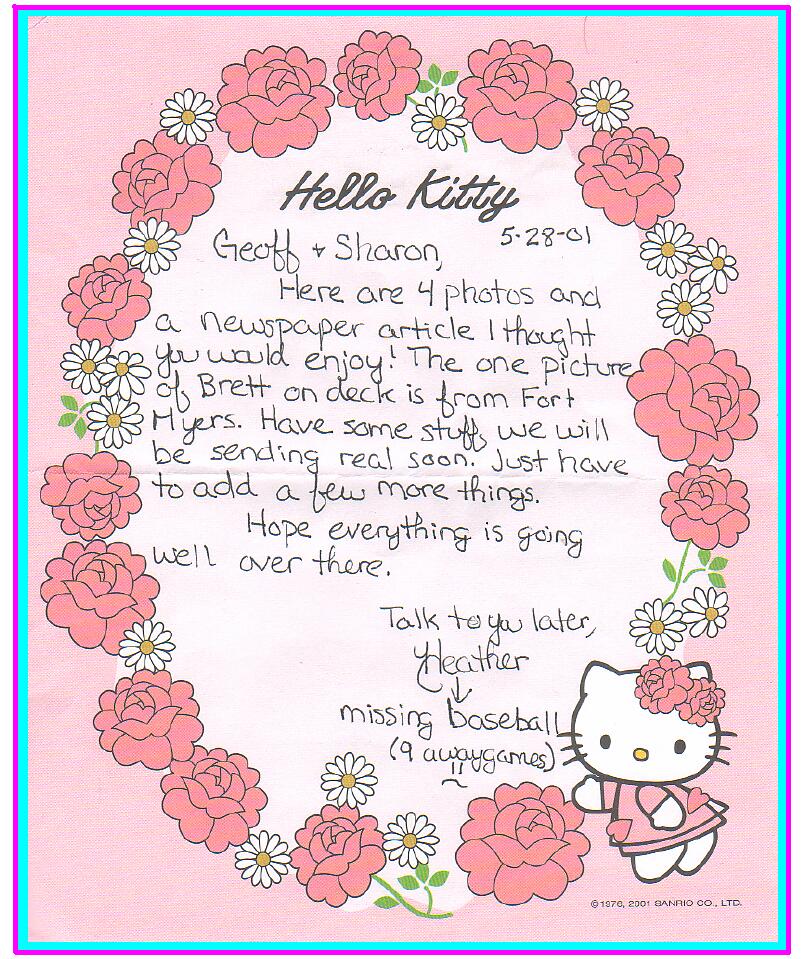 Hello Kitty
5-28-01
Geoff + Sharon,
Here are 4 photos and
a newspaper article I thought
you would enjoy! The one picture
of Brett on deck is from Fort
Myers. Have some stuff we will
be sending real soon. Just have
to add a few more things.
Hope everything is going
well over there.
Talk to you later,
Heather
↓
missing baseball
(9 away games)
©1976, 2001 SANRIO CO., LTD.